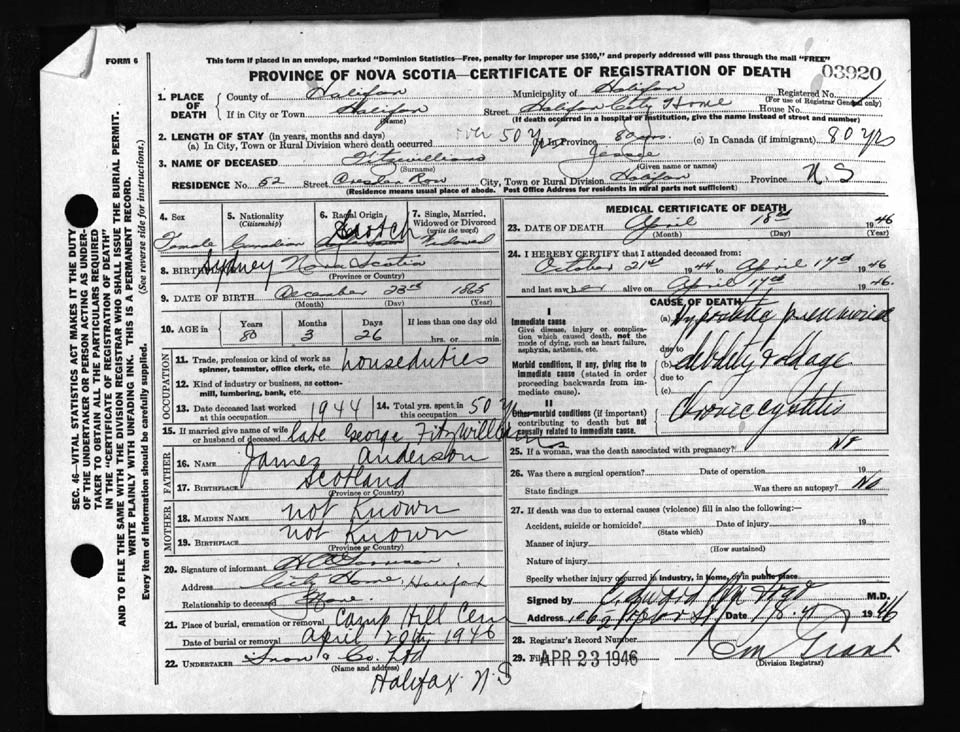 FORM 6
This form if placed in an envelope, marked "Dominion Statistics—Free, penalty for improper use $300," and properly addressed will pass through the mail "FREE"
PROVINCE OF NOVA SCOTIA—CERTIFICATE OF REGISTRATION OF DEATH
03920
1. PLACE OF DEATH
County of Halifax Municipality of Halifax Registered No.
(For use of Registrar General only)
If in City or Town Halifax Street Halifax City Home House No.
(Name) (If death occurred in a hospital or institution, give the name instead of street and number)
2. LENGTH OF STAY (in years, months and days)
(a) In City, Town or Rural Division where death occurred over 50 Y (b) In Province 80 yrs. (c) In Canada (if immigrant) 80 Yrs
3. NAME OF DECEASED Fitzwilliams Jessie
(Surname) (Given name or names)
RESIDENCE No. 52 Street Dresden Row City, Town or Rural Division Halifax Province N.S
(Residence means usual place of abode. Post Office Address for residents in rural parts not sufficient)
4. Sex Female
5. Nationality (Citizenship) Canadian
6. Racial Origin Scotch
7. Single, Married, Widowed or Divorced (write the word) Widowed
8. BIRTHPLACE Sydney Nova Scotia
(Province or Country)
9. DATE OF BIRTH December 23rd 1865
(Month) (Day) (Year)
10. AGE Years 80 Months 3 Days 26 If less than one day old
hrs. or min.
OCCUPATION
11. Trade, profession or kind of work as spinner, teamster, office clerk, etc. houseduties
12. Kind of industry or business, as cotton-mill, lumbering, bank, etc.
13. Date deceased last worked at this occupation 1944
14. Total yrs. spent in this occupation 50 Y
15. If married give name of wife or husband of deceased late George Fitzwilliams
FATHER
16. NAME James Anderson
17. BIRTHPLACE Scotland
(Province or Country)
MOTHER
18. MAIDEN NAME not Known
19. BIRTHPLACE not Known
(Province or Country)
20. Signature of informant
Address City Home, Halifax
Relationship to deceased
21. Place of burial, cremation or removal Camp Hill Cem
Date of burial or removal April 20th 1946
22. UNDERTAKER Snow & Co. Ltd
(Name and address)
Halifax N.S
MEDICAL CERTIFICATE OF DEATH
23. DATE OF DEATH April 18th 1946
(Month) (Day)
24. I HEREBY CERTIFY that I attended deceased from:
October 21st 1944 to April 17th 1946
and last saw her alive on April 17th 1946.
CAUSE OF DEATH
I
Immediate cause
Give disease, injury or complication which caused death, not the mode of dying, such as heart failure, asphyxia, asthenia, etc.
(a) Hypostatic pneumonia
due to
Morbid conditions, if any, giving rise to immediate cause (stated in order proceeding backwards from immediate cause).
(b) debility & old age
due to
(c)
II
Other morbid conditions (if important) contributing to death but not causally related to immediate cause.
Chronic cystitis
25. If a woman, was the death associated with pregnancy? No
26. Was there a surgical operation? Date of operation 19
State findings Was there an autopsy? No
27. If death was due to external causes (violence) fill in also the following:—
Accident, suicide or homicide? Date of injury 19
(State which)
Manner of injury
(How sustained)
Nature of injury
Specify whether injury occurred in industry, in home, or in public place.
Signed by M.D.
Address Date 1946
28. Registrar's Record Number
29. Filed APR 23 1946 Grant
(Division Registrar)
SEC. 46—VITAL STATISTICS ACT MAKES IT THE DUTY
OF THE UNDERTAKER OR PERSON ACTING AS UNDER-
TAKER TO OBTAIN ALL THE PARTICULARS REQUIRED
IN THE "CERTIFICATE OF REGISTRATION OF DEATH"
AND TO FILE THE SAME WITH THE DIVISION REGISTRAR WHO SHALL ISSUE THE BURIAL PERMIT.
WRITE PLAINLY WITH UNFADING INK. THIS IS A PERMANENT RECORD.
Every item of information should be carefully supplied. (See reverse side for instructions.)